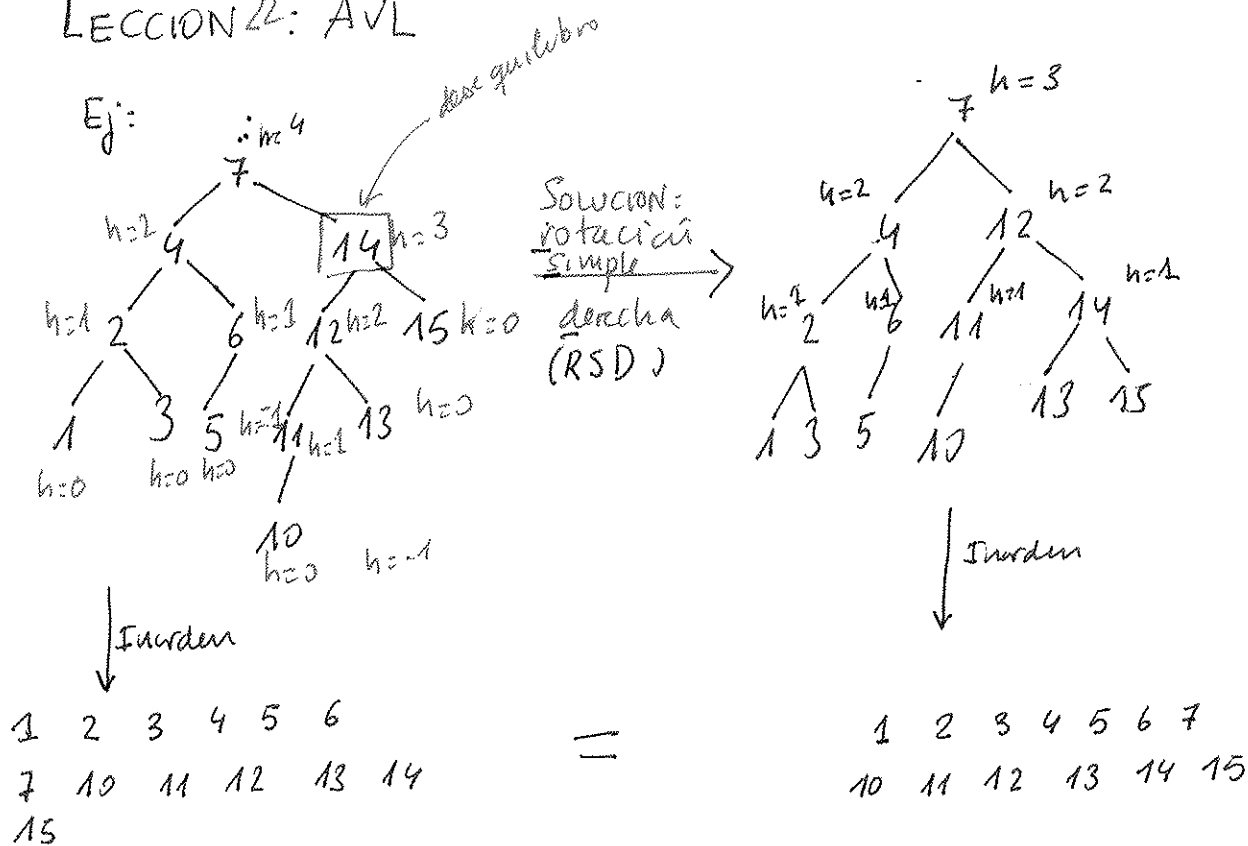 LECCION 22: AVL
desequilibro
Ej:
h=4
7
h=2
4
14
h=3
h=1
2
6
h=1
12
h=2
15
h=0
1
3
5
h=-1
11
h=1
13
h=0
h=0
h=0
h=0
10
h=0
h=-1
SOLUCION:
rotación
simple
derecha
(RSD)
7
h=3
h=2
4
12
h=2
h=1
2
h=1
6
11
h=1
14
h=1
1
3
5
10
13
15
Inorden
Inorden
1 2 3 4 5 6
7 10 11 12 13 14
15
=
1 2 3 4 5 6 7
10 11 12 13 14 15